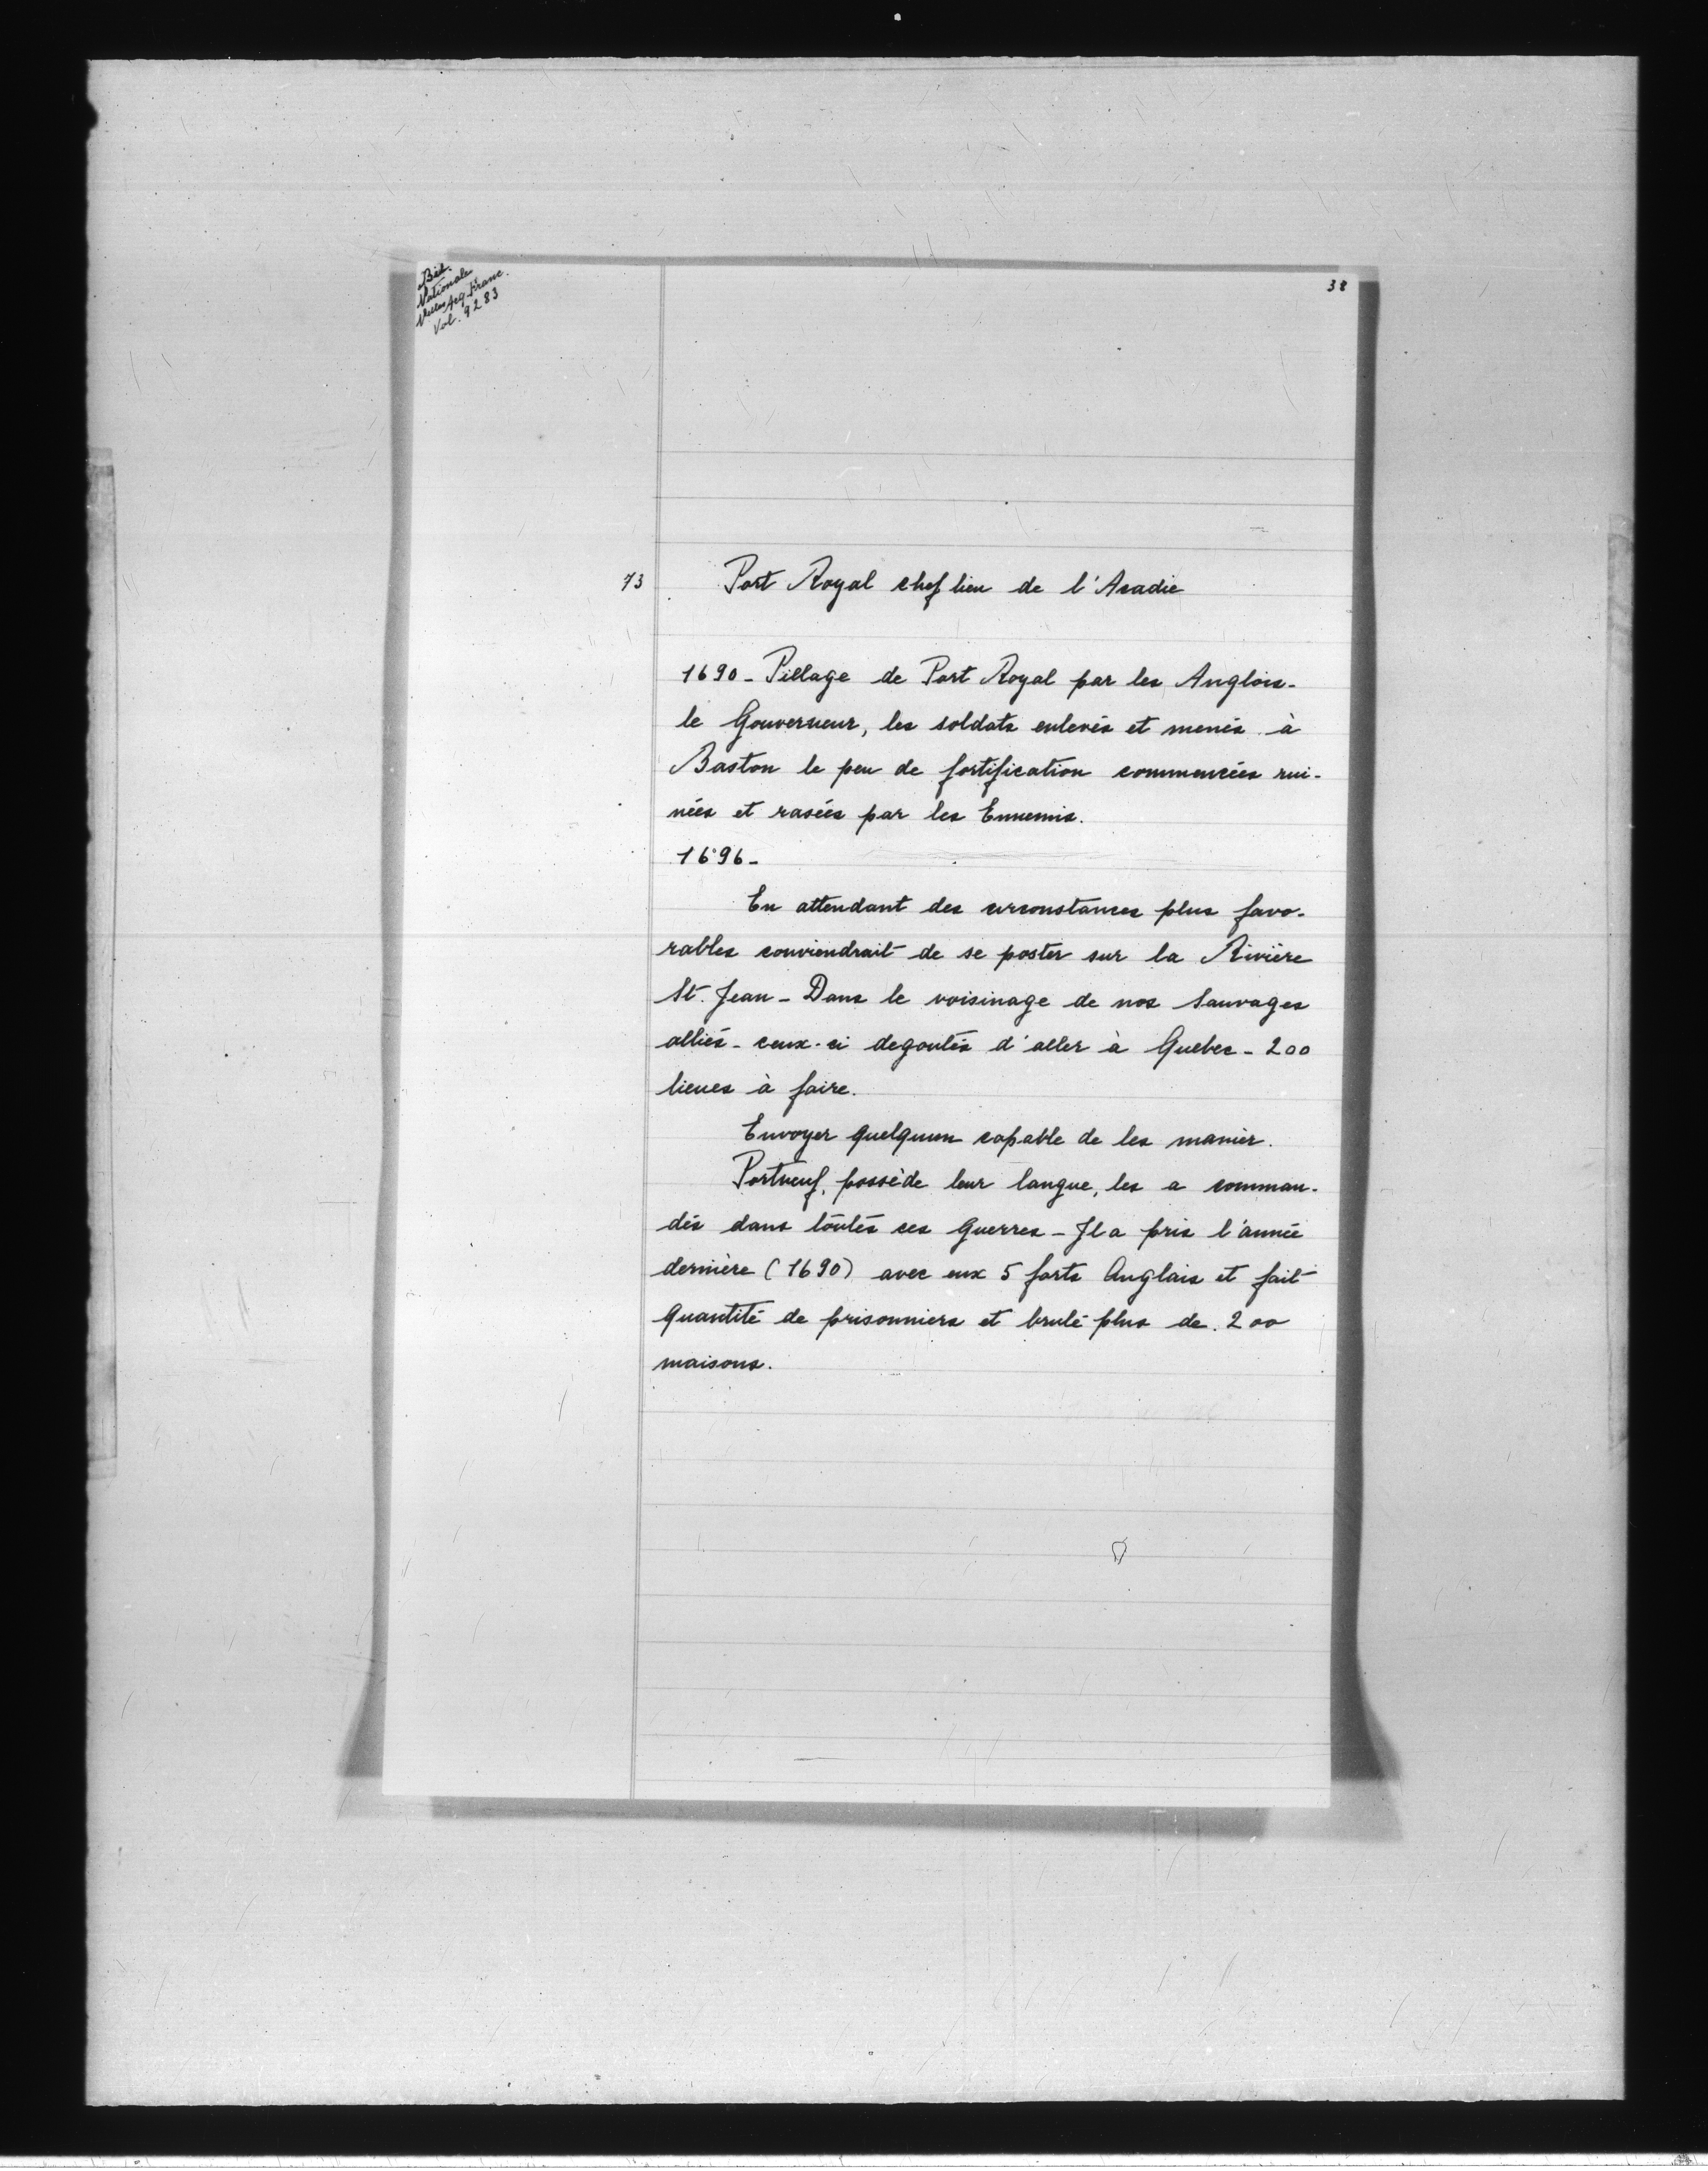 Bib.
Nationale
Nelles Acq. Franc.
Vol. 9283
38
73
Port Royal chef lieu de l'Acadie
1690 - Pillage de Port Royal par les Anglois -
le Gouverneur, les soldats enlevés et menés à
Baston le peu de fortification commencées rui-
nées et rasées par les Ennemis.
1696 -
En attendant des circonstances plus favo-
rables conviendrait de se poster sur la Rivière
St. Jean - Dans le voisinage de nos Sauvages
alliés - ceux-ci degoutés d'aller à Quebec - 200
lieues à faire.
Envoyer quelquun capable de les manier.
Portneuf, possède leur langue, les a comman-
dés dans toutes ces Guerres - Il a pris l'année
dernière (1690) avec eux 5 forts Anglais et fait
quantité de prisonniers et brulé plus de 200
maisons.